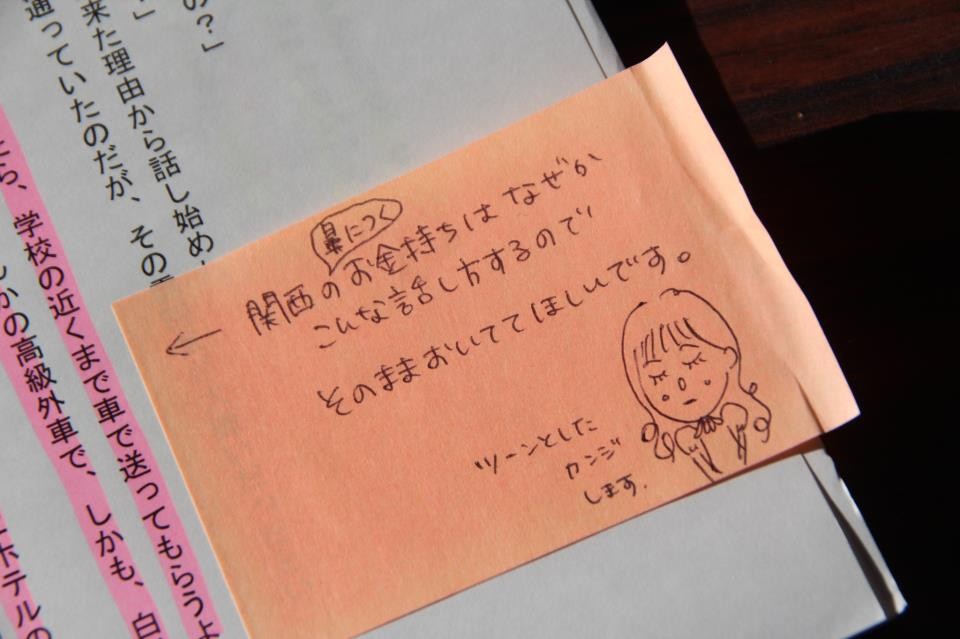 の？」
」
来た理由から話し始め
通っていたのだが、その
ら、学校の近くまで車で送ってもらうよ
かの高級外車で、しかも、白
ホテルの
鼻につく
← 関西のお金持ちはなぜか
こんな話し方するので
そのままおいててほしいんです。
ツーンとした
カンジ
します.